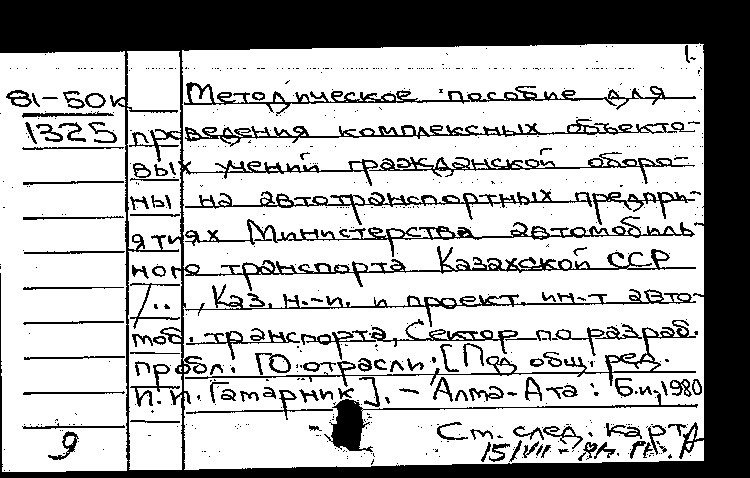 1.
81-50к
1325
Методическое пособие для
проведения комплексных объекто-
вых учений гражданской оборо-
ны на автотранспортных предпри-
ятиях Министерства автомобиль-
ного транспорта Казахской ССР
/... , Каз. н.-и. и проект. ин-т авто-
моб. транспорта, Сектор по разраб.
пробл. ГО отрасли; [Под общ. ред.
П.П. Гамарник]. - Алма-Ата : Б.и, 1980
См. след. карт
9
15/VII -